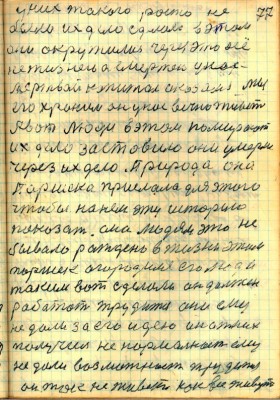 у них такого росто не
было их дело сделало в этом
они окрутили через это всё
не жизнено а смертей у нас
мертвой капитал оказано, мы
его храним он у нас вечно живет
А вот люди в этом помирают
их дело заставило они умерли
через их дело. Природа она
Паршека прислала для этого
чтобы на нем эту историю
показат. она людям это не
бывало рождено в жизни этим
паршек огородил его люди
таким вот сделали он должен
работат трудится они ему
не дали за его идею она от них
получил не нормальност ему
не дали возможност трудится
он тоже не живет как все живут